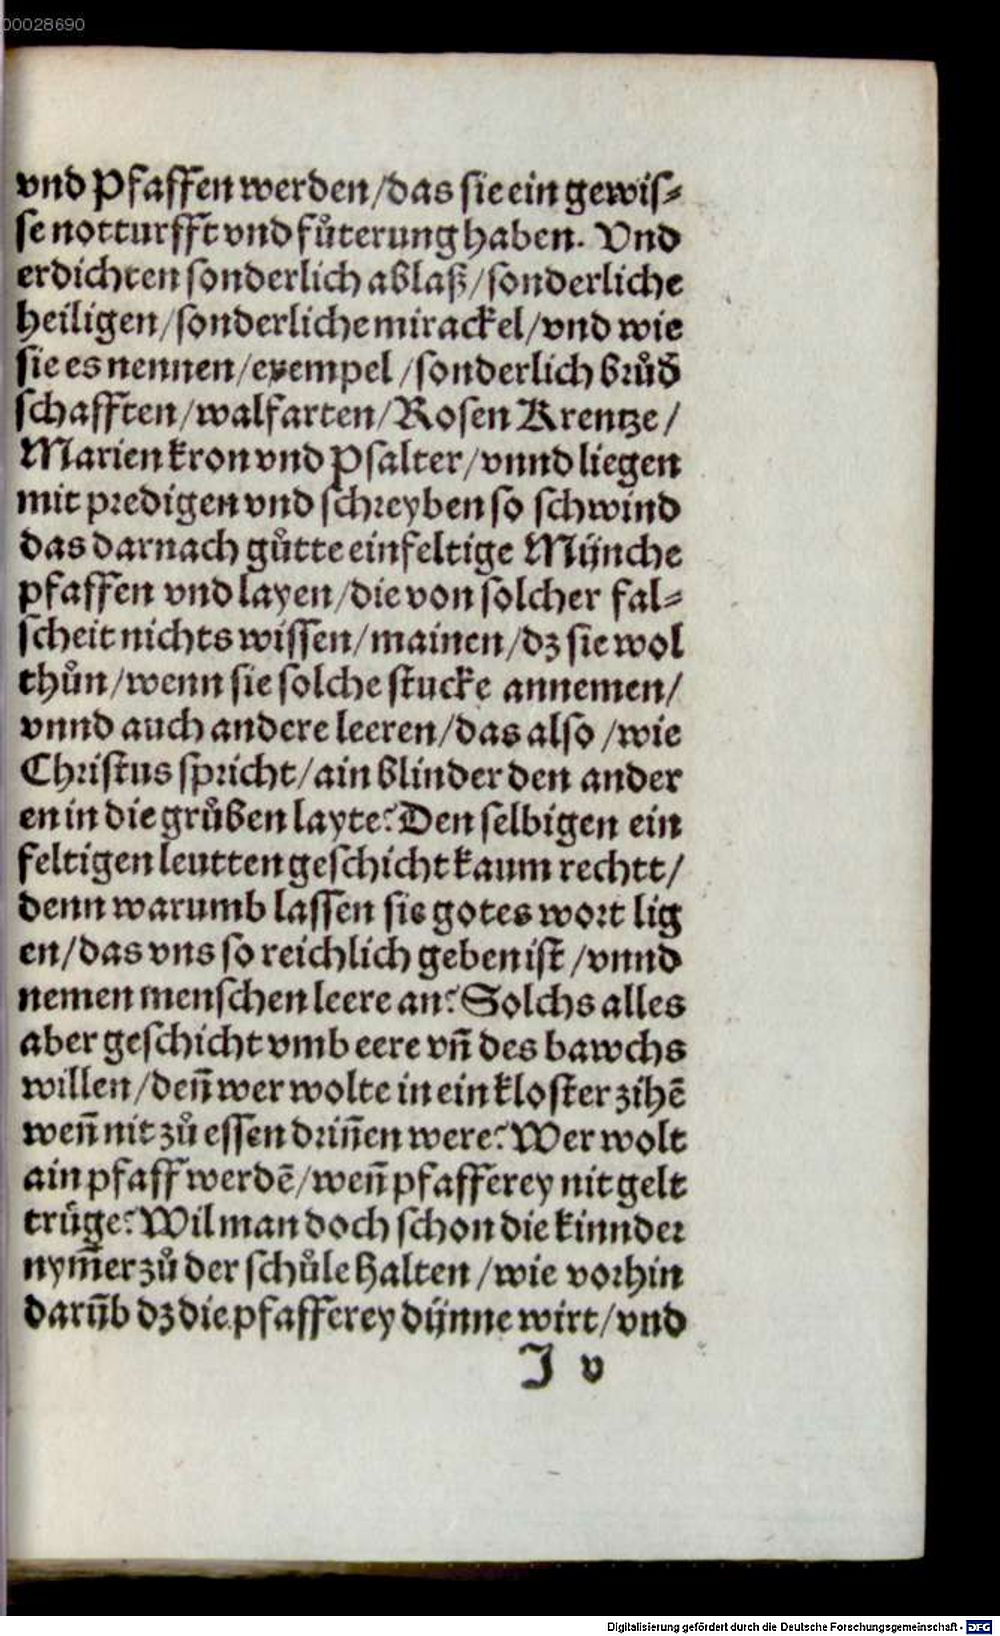 00028690
vnd Pfaffen werden/das sie ein gewis⸗
se notturfft vnd fůterung haben. Vnd
erdichten sonderlich ablaß/sonderliche
heiligen/sonderliche mirackel/vnd wie
sie es nennen/exempel/sonderlich brůd̄
schafften/walfarten/Rosen Krentze/
Marien kron vnd Psalter/vnnd liegen
mit predigen vnd schreyben so schwind
das darnach gůtte einfeltige Mÿnche
pfaffen vnd layen/die von solcher fal⸗
scheit nichts wissen/mainen/dz sie wol
thůn/wenn sie solche stucke annemen/
vnnd auch andere leeren/das also/wie
Christus spricht/ain blinder den ander
en in die grůben layte? Den selbigen ein
feltigen leutten geschicht kaum rechtt/
denn warumb lassen sie gotes wort lig
en/das vns so reichlich geben ist/vnnd
nemen menschen leere an? Solchs alles
aber geschicht vmb eere vñ des bawchs
willen/deñ wer wolte in ein kloster zihē
weñ nit zů essen driñen were? Wer wolt
ain pfaff werdē/weñ pfafferey nit gelt
trüge? Wil man doch schon die kinnder
nym̄er zů der schůle halten/wie vorhin
darūb dz die pfafferey dÿnne wirt/vnd
J v
Digitalisierung gefördert durch die Deutsche Forschungsgemeinschaft - DFG